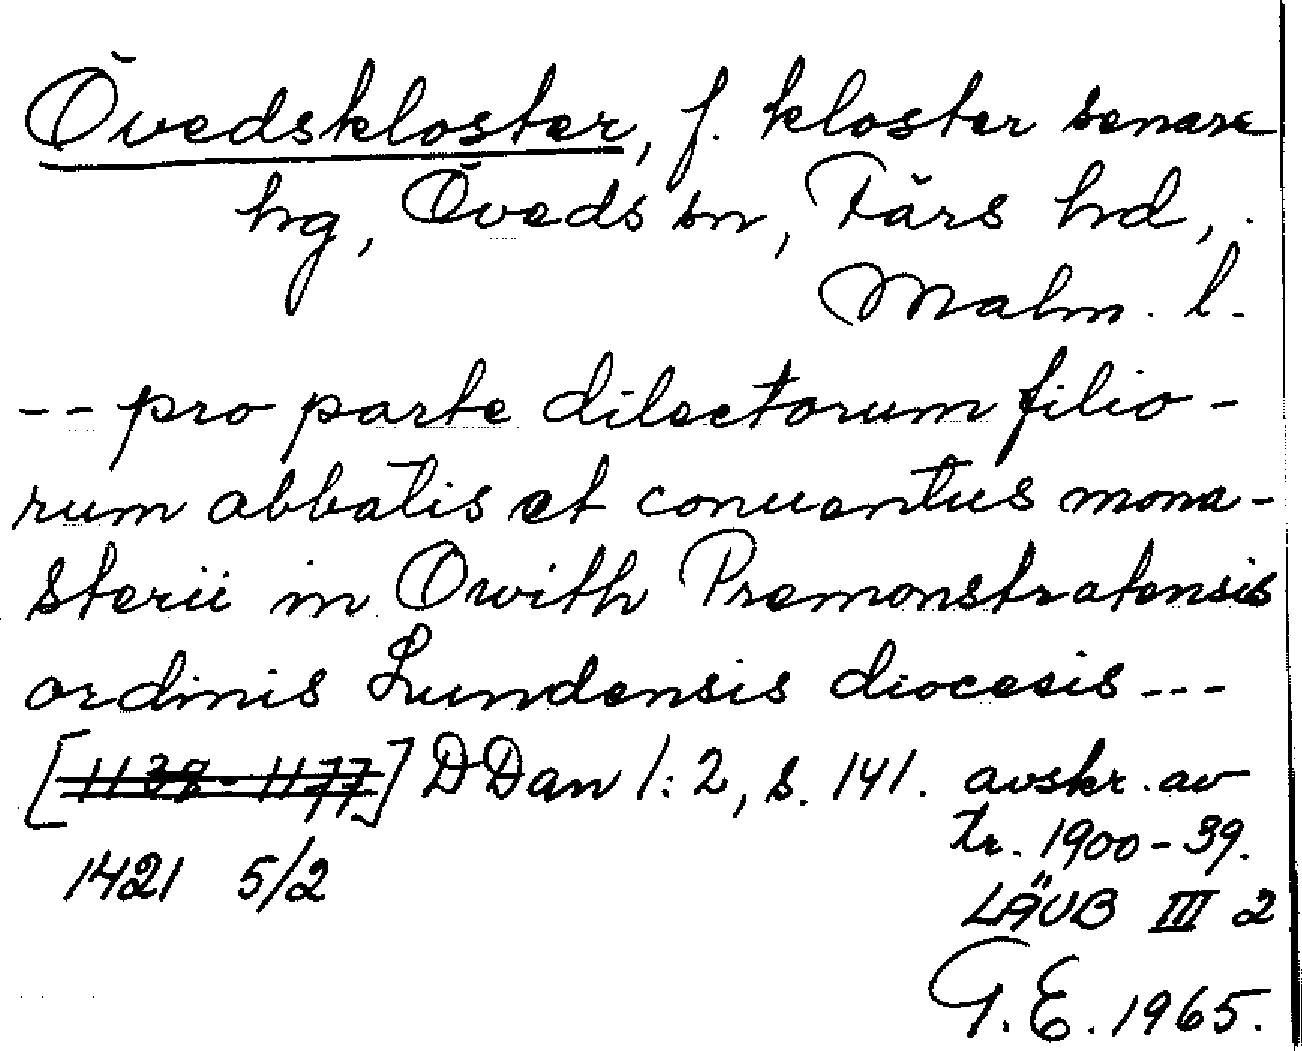 Övedskloster, f. kloster senare
hg, Öveds sn, Färs hd,
Malm. l.
-- pro parte dilectorum filio-
rum abbatis et conuentus mona-
sterii in Owith Premonstratensis
ordinis Lundensis diocesis ---
[1138-1177] DDan 1:2, s. 141. avskr. av
tr. 1900-39.
1421 5/2
LÄUB III 2
G.E. 1965.